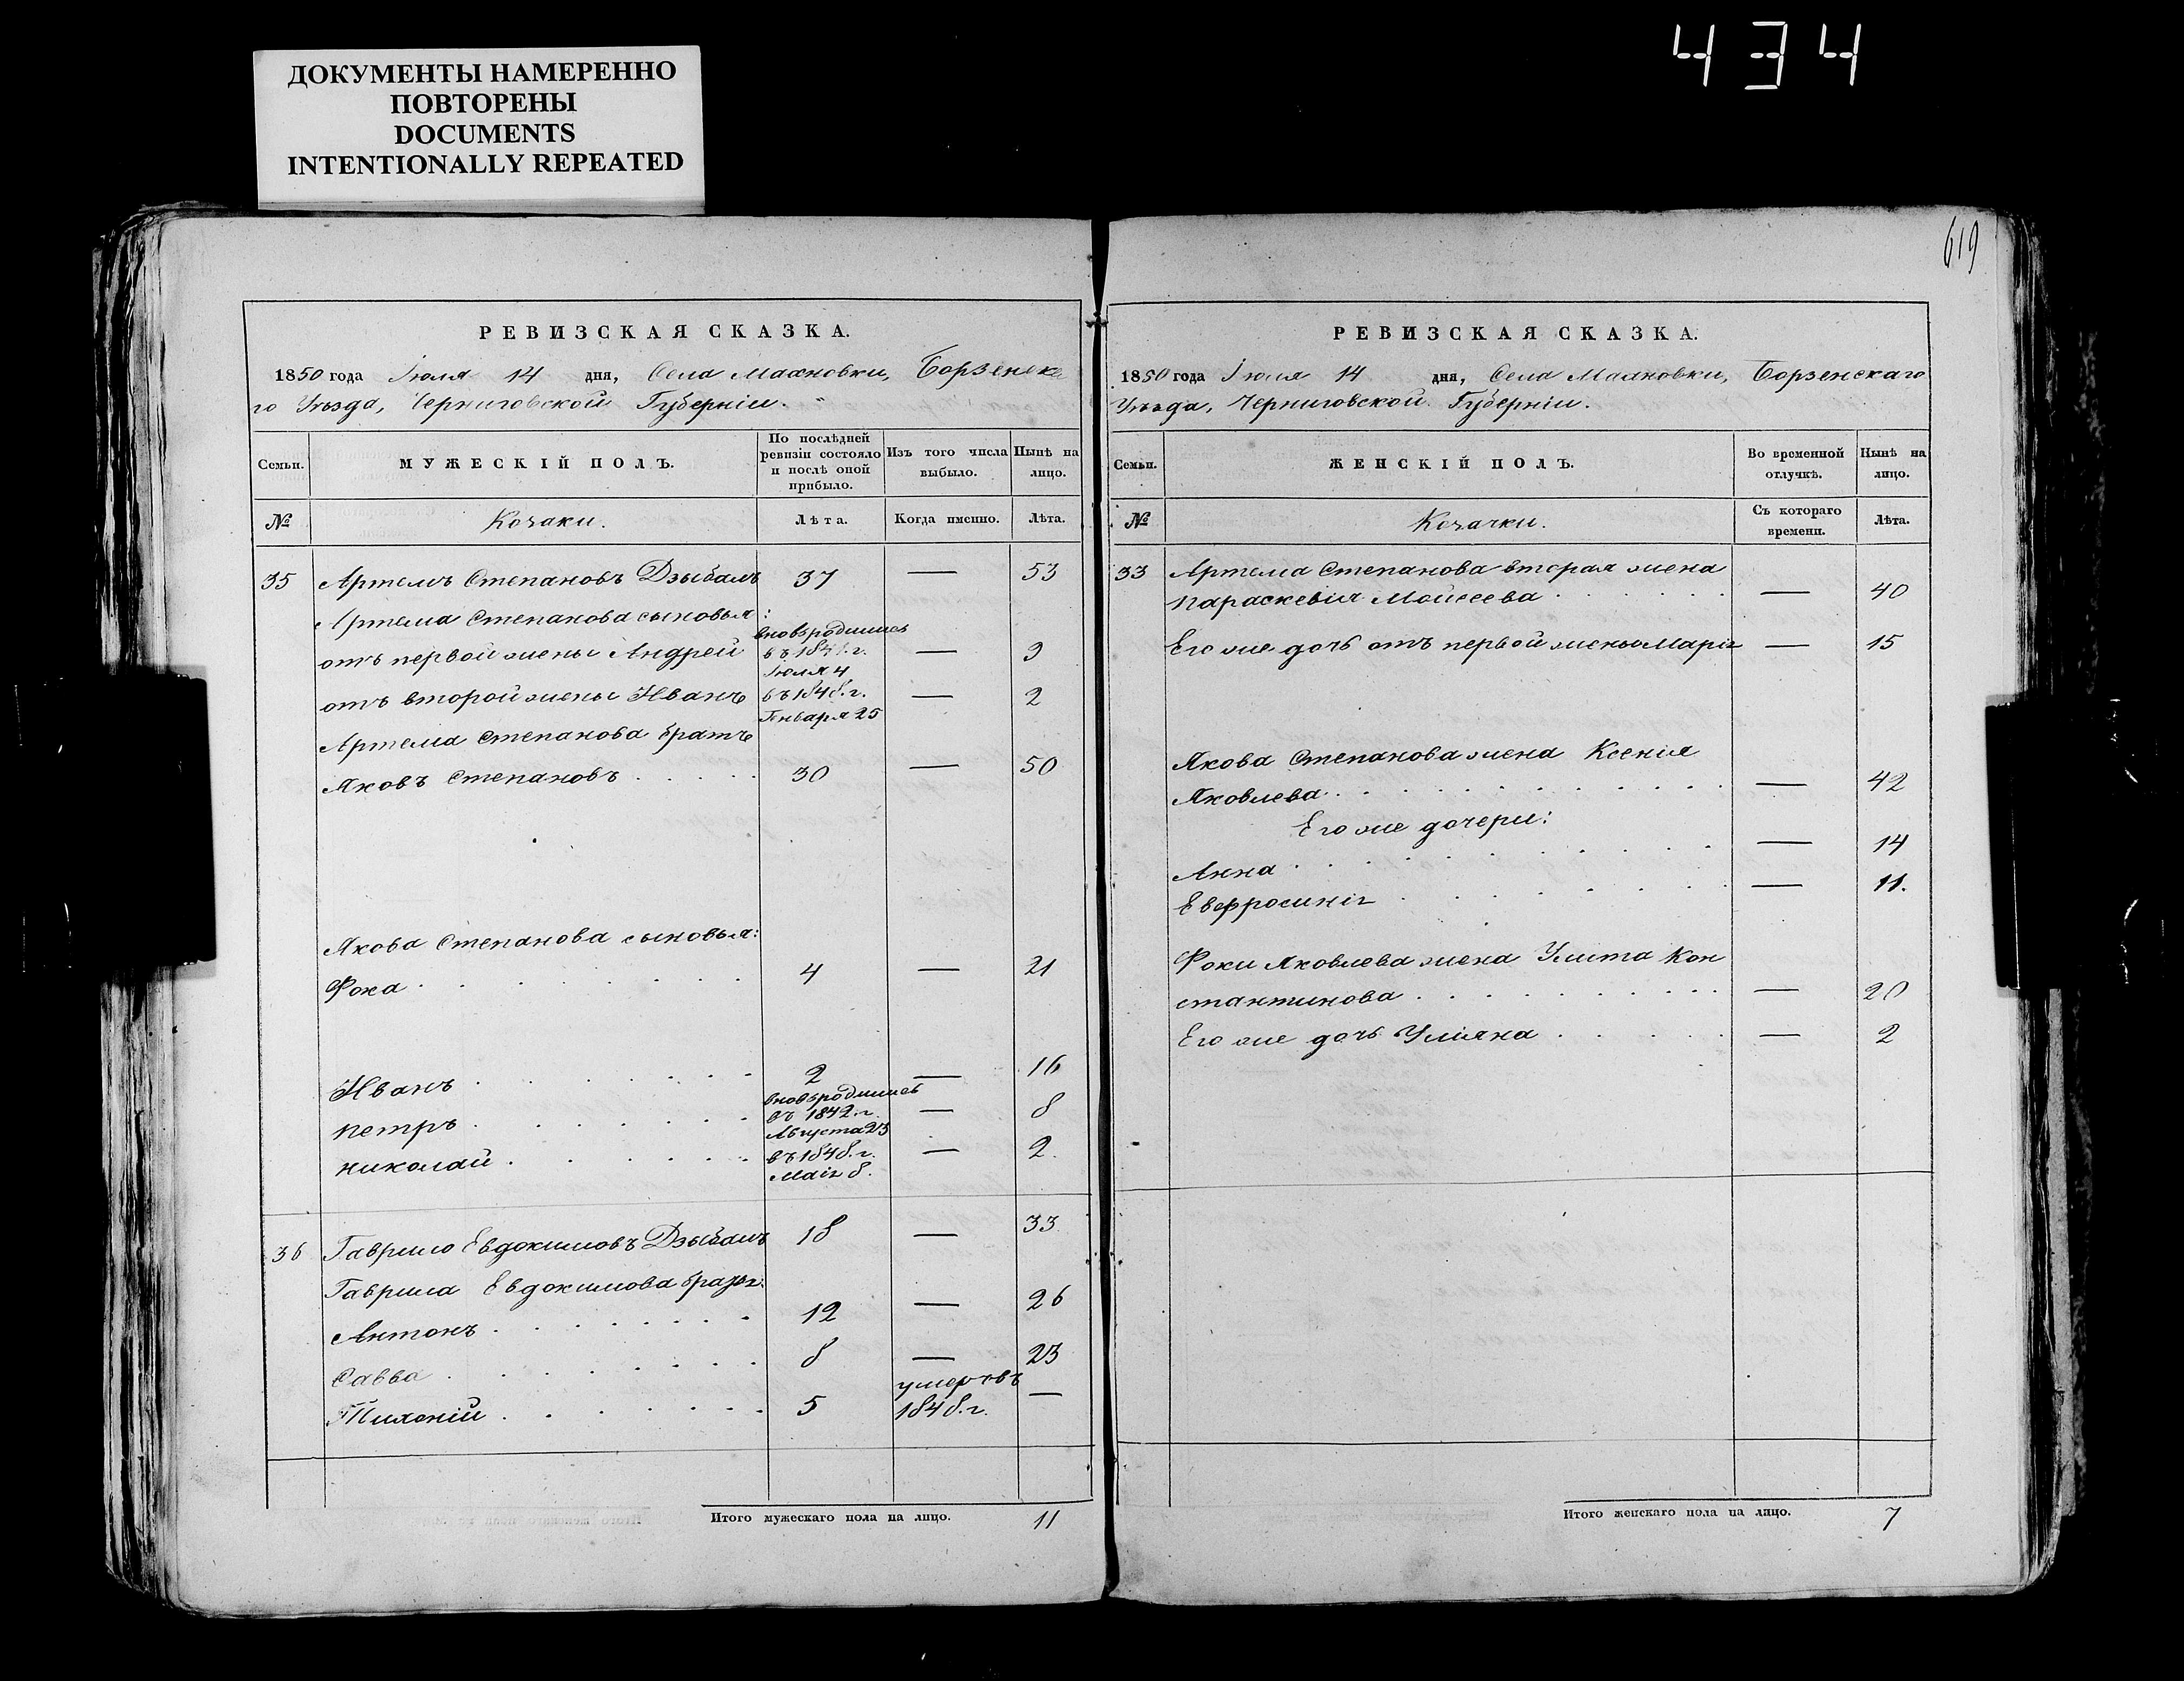 434
ДОКУМЕНТЫ НАМЕРЕННО
ПОВТОРЕНЫ
DOCUMENTS
INTENTIONALLY REPEATED
РЕВИЗСКАЯ СКАЗКА.
1850 года Іюля 14 дня, Села Махновки, Борзенска
го Уѣзда, Черниговской Губерніи.
Семьи. МУЖЕСКІЙ ПОЛЪ. По послѣдней ревизіи состояло и послѣ оной прибыло. Изъ того числа выбыло. Нынѣ на лицо.
№ Козаки. Лѣта. Когда именно. Лѣта.
35 Артемъ Степановъ Дзыбалъ 37 — 53
Артема Степанова сыновья:
отъ первой жены Андрей вновь родились въ 1841.г. Іюля 4 — 9
отъ второй жены Иванъ въ 1848.г. Генваря 25 — 2
Артема Степанова братъ
Яковъ Степановъ 30 — 50
Якова Степанова сыновья:
Фока 4 — 21
Иванъ 2 — 16
Петръ вновь родились въ 1842.г. Августа 23 — 8
Николай въ 1848.г. Маія 8. — 2.
36 Гаврило Евдокимовъ Дзыбалъ 18 — 33
Гаврила Евдокимова братья:
Антонъ 12 — 26
Савва 8 — 23
5 умеръ въ 1848.г. —
Итого мужескаго пола на лицо. 11
619
РЕВИЗСКАЯ СКАЗКА.
1850 года Іюля 14 дня, Села Махновки, Борзенскаго
Уѣзда, Черниговской Губерніи.
Семьи. ЖЕНСКІЙ ПОЛЪ. Во временной отлучкѣ. Нынѣ на лицо.
№ Козачки. Съ котораго времени. Лѣта.
33 Артема Степанова вторая жена
Параскевія Моисеева — 40
Его же дочь отъ первой жены Марія — 15
Якова Степанова жена Ксенія
Яковлева — 42
Его же дочери:
Анна — 14
Евфросинія — 11.
Фоки Яковлева жена Улита Кон
стантинова — 20
Его же дочь Уліяна — 2
Итого женскаго пола на лицо. 7